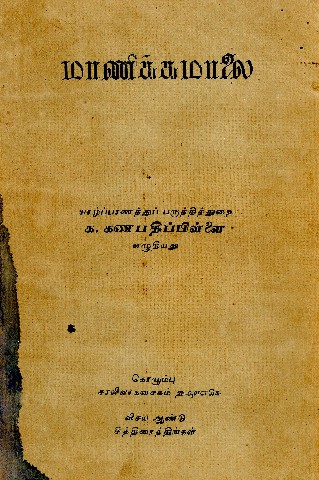 மாணிக்கமாலை
யாழ்ப்பாணத்துப் பருத்தித்துறை
க. கணபதிப்பிள்ளை
எழுதியது
கொழும்பு
விசய ஆண்டு
சித்திரைத்திங்கள்